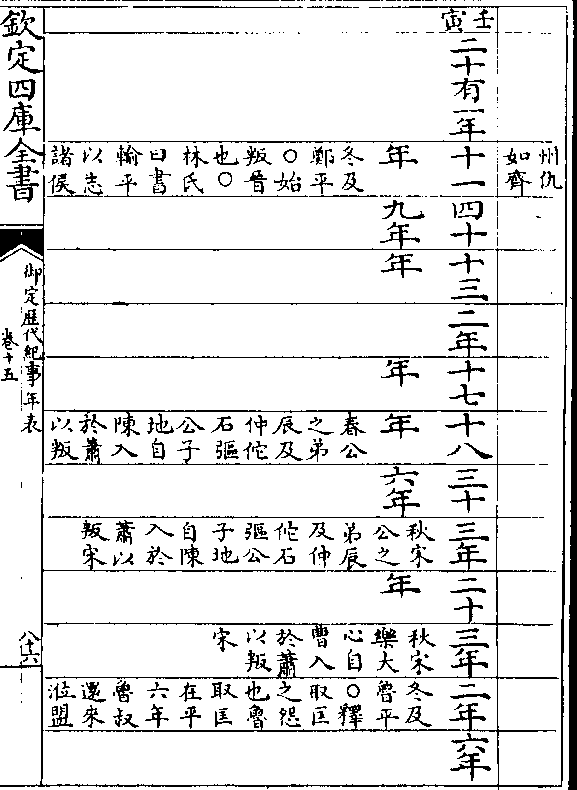 州仇
如齊
壬寅
二十有一年
十一
年
冬及
鄭平
○始
叛晉
也○
林氏
曰書
輸平
以志
諸侯
四十
九年
十三
年
二年
十七
年
十八
年
春公
之弟
辰及
仲佗
石彄
公子
地自
陳入
於蕭
以叛
三十
六年
三年
秋宋
公之
弟辰
及仲
佗石
彄公
子地
自陳
入於
蕭以
叛宋
二十
年
三年
秋宋
樂大
心自
曹入
於蕭
以叛
宋
二年
冬及
魯平
○釋
取匡
之怨
也魯
取匡
在平
六年
魯叔
還來
涖盟
六年
欽定四庫全書
御定歴代紀事年表
卷十五
八十六